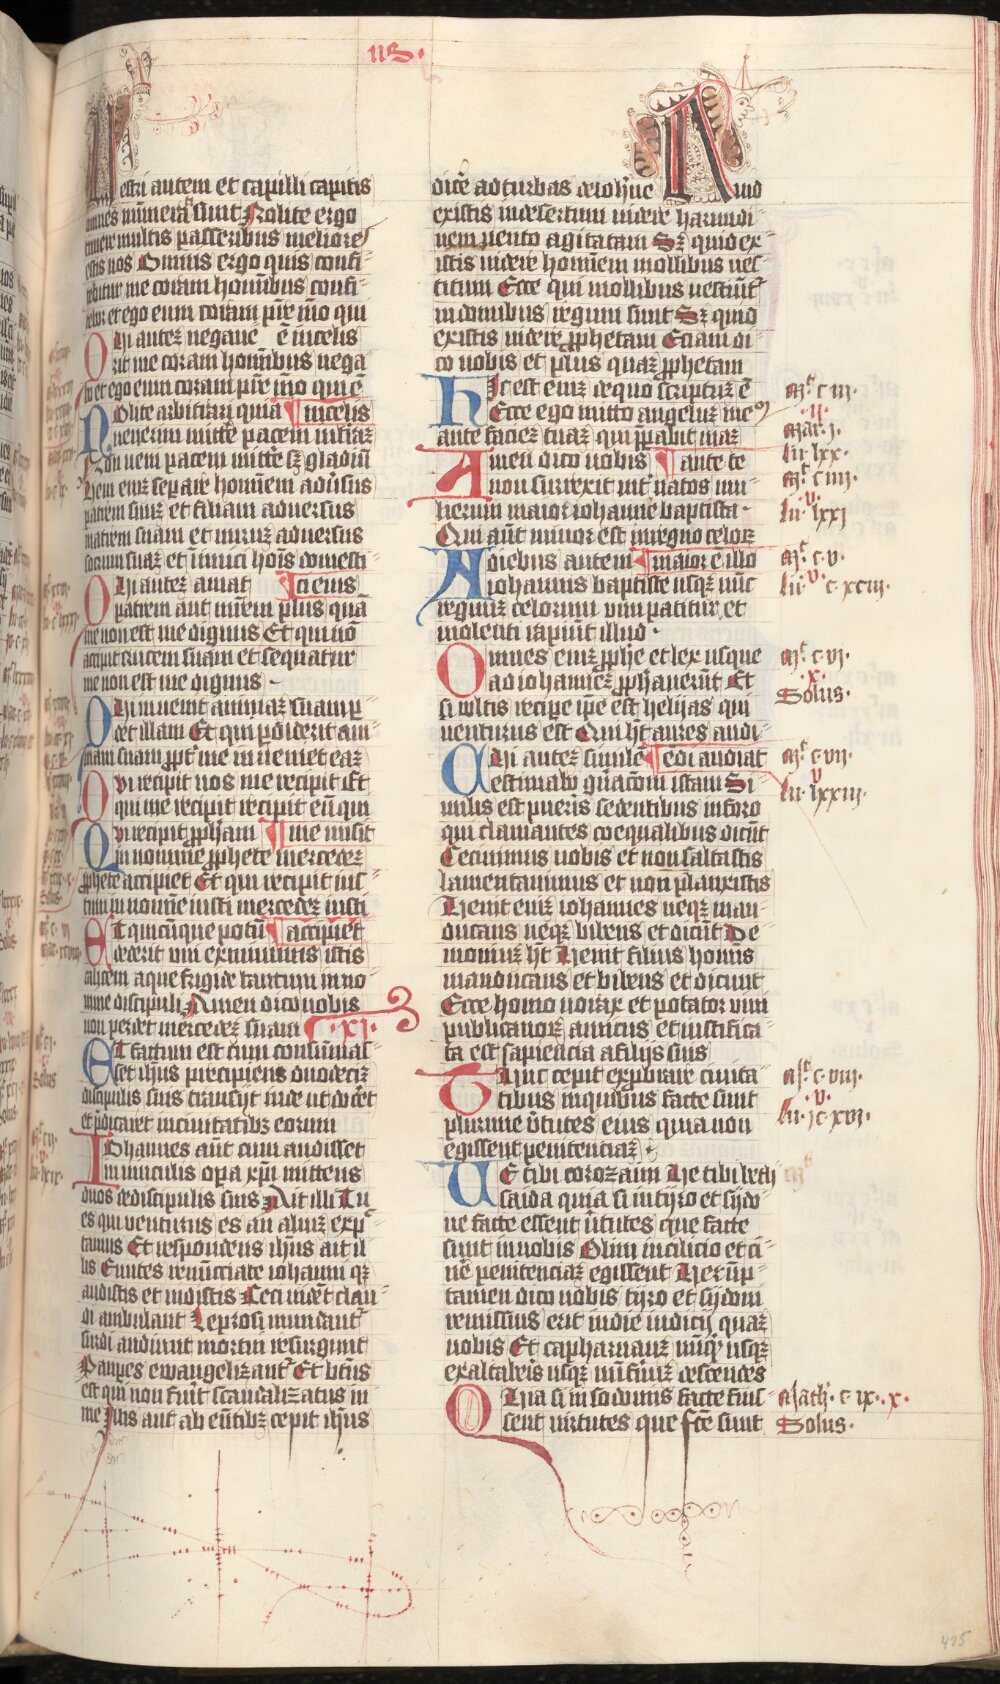 us.
Uestri autem et capilli capitis
omnes numerati sunt Nolite ergo
timere multis passeribus meliores
estis uos Omnis ergo quis confi-
tebitur me coram hominibus confi-
tebor et ego eum coram prē mō qui
Qui autez negaue ē in celis
rit me coram hominibus nega
bo et ego eum coram prē mō qui ē
Nolite arbitrari quia in celis
uenerim mittē pacem in traz
Non ueni pacem mittē sz gladiū
Ueni enīz separare homīem aduersus
patrem suuz et filiam aduersus
matrem suam et nuruz aduersus
socrum suaz et inimici hoīs domesti
Qui autez amat ci eius
patrem aut mrēm plus quā
me non est me dignus Et qui nō
accipit crucem suam et sequatur
me non est me dignus
Qui inuenit animaz suam p
det illam Et qui pdiderit ani
mam suam ppt' me inueniet eaz
Qui recipit uos me recipit Et
qui me recipit recipit eū qui
Qui recipit pphetam me misit
in nomine pphete mercedez
pphete accipiet Et qui recipit ius
tum in nomine iusti mercedez iusti
Et quicunque potū accipiet
dederit uni ex minimis istis
calicem aque frigide tantum in no
mine discipuli Amen dico uobis
non perdet mercedez suam .xi.
Et factum est cum consumas
set ihus precipiens duodeciz
discipulis suis transijt inde ut docēt
et pdicaret in ciuitatibz eorum
Iohannes aūt cum audisset
in uinculis opa xpi mittens
duos de discipulis suis Ait illi Tu
es qui uenturus es an aliuz exp
tamus Et respondens ihus ait il
lis Euntes renūciate iohanni qz
audistis et uidistis Ceci uidēt clau
di ambulant Leprosi mundant'
surdi audiunt mortui resurgunt
Paupes ewangelizant' Et btūs
est qui non fuit scandalizatus in
me Illis aut abeūtibz cepit ihus
dicē ad turbas de iohne Quid
existis in desertum uidere harundi
nem uento agitatam Sz quid ex
istis uidere hominem mollibus ues
titum Ecce qui mollibus uestiūt'
in domibus regum sunt Sz quid
existis uidere pphetam Etiam di
co uobis et plus quaz pphetam
Hic est eniz de quo scriptuz ē
Ecce ego mitto angeluz meū
ante faciez tuaz qui ppabit uiaz
Amen dico uobis ante te
non surrexit int' natos mu
lierum maior iohanne baptista
Qui aūt minor est in regno celor
A diebus autem maior ē illo
iohannis baptiste usqz nūc
regnuz celorum uim patitur et
uiolenti rapiūt illud
Omnes eniz pphe et lex usque
ad iohannez pphauerūt Et
si uultis recipe ipe est helijas qui
uenturus est Qui ht aures audi
Cui autez similē endi audiat
estimabo gnacōm istam Si
milis est pueris sedentibus in foro
qui clamantes coequalibus dicūt
Cecinimus uobis et non saltastis
lamentauimus et non planxistis
Uenit eniz iohannes neqz man
ducans neqz bibens et dicūt De
moniuz ht Uenit filius homis
manducans et bibens et dicunt
Ecce homo uorax et potator uini
publicanorz amicus et iustifica
ta est sapiencia a filijs suis
Tunc cepit exprobrare ciuita
tibus in quibus facte sunt
plurime v̄tutes eius quia non
egissent penitenciaz
Ue tibi corozaim Ue tibi beth
saida quia si in tyro et sydo
ne facte essent v̄tutes que facte
sunt in uobis Olim in cilicio et ci
nē penitenciaz egissent Uerūp
tamen dico uobis tyro et sydoni
remissius erit in die iudicij quaz
uobis Et capharnauz nūqz usqz
exaltaberis usqz in īfernuz descendes
Quia si in sodomis facte fuis
sent uirtutes que fcē sunt
Mt c iij.
.ij.
Mar. j.
lu lxx.
Mt c iiij.
.v.
lu lxxj
Mt c v.
.v.
lu c xciij.
Mt c vj.
.x.
Solus.
Mt c vij.
v
lu lxxiij.
Mt c viij.
.v.
lu jc xvj.
Math. c ix. x.
Solus.
415